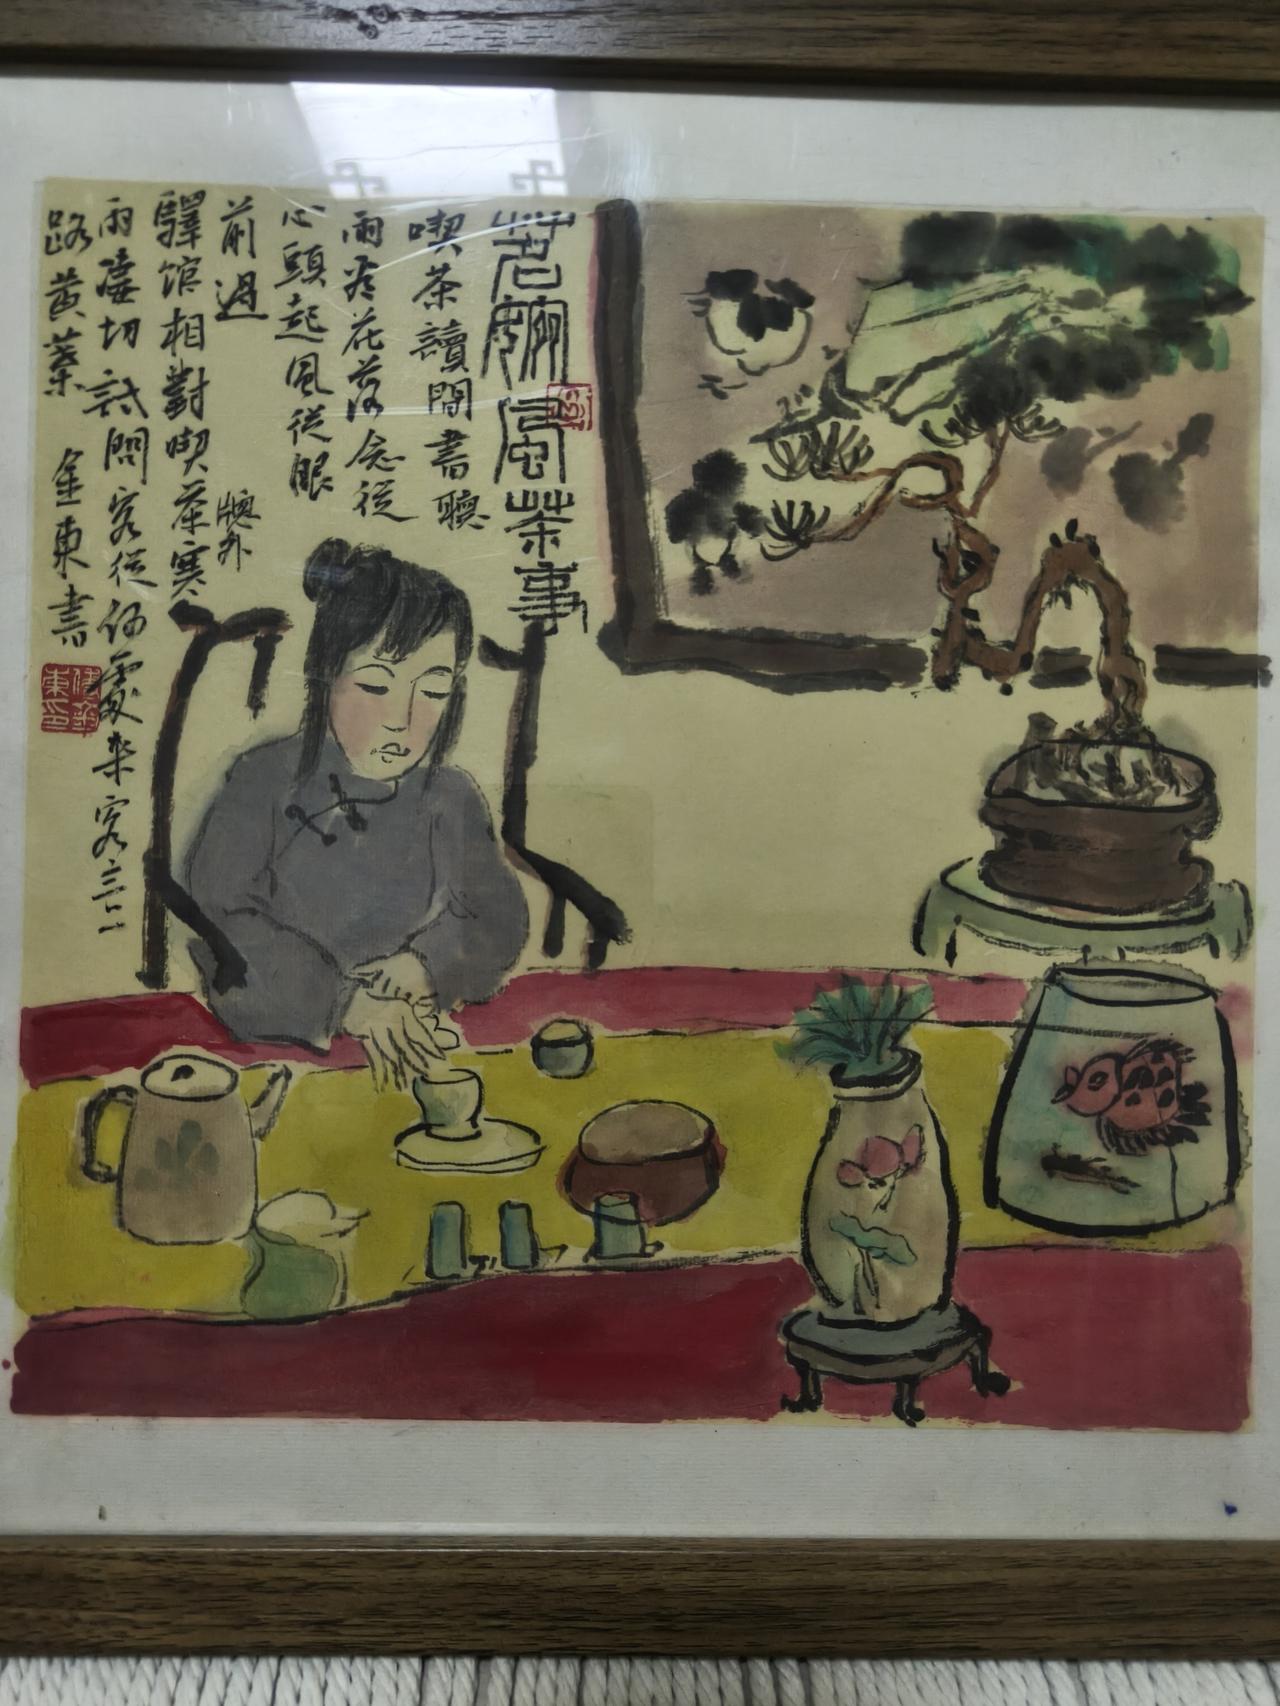 茗風茶事
喫茶讀閒書聽
雨看花落念從
心頭起風從眼
前過
牕外
驛館相對喫茶寒
雨凄切試問客從何處来客言一
路黄葉 金東書
金東印